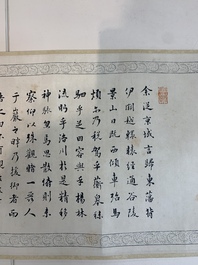 余從京域言歸東藩背
伊闕越轘轅經通谷陵
景山日既西傾車殆馬
煩爾乃稅駕乎蘅皋秣
駟乎芝田容與乎楊林
流眄乎洛川於是精移
神駭忽焉思散俯則未
察仰以殊觀睹一麗人
于巖之畔乃援御者而